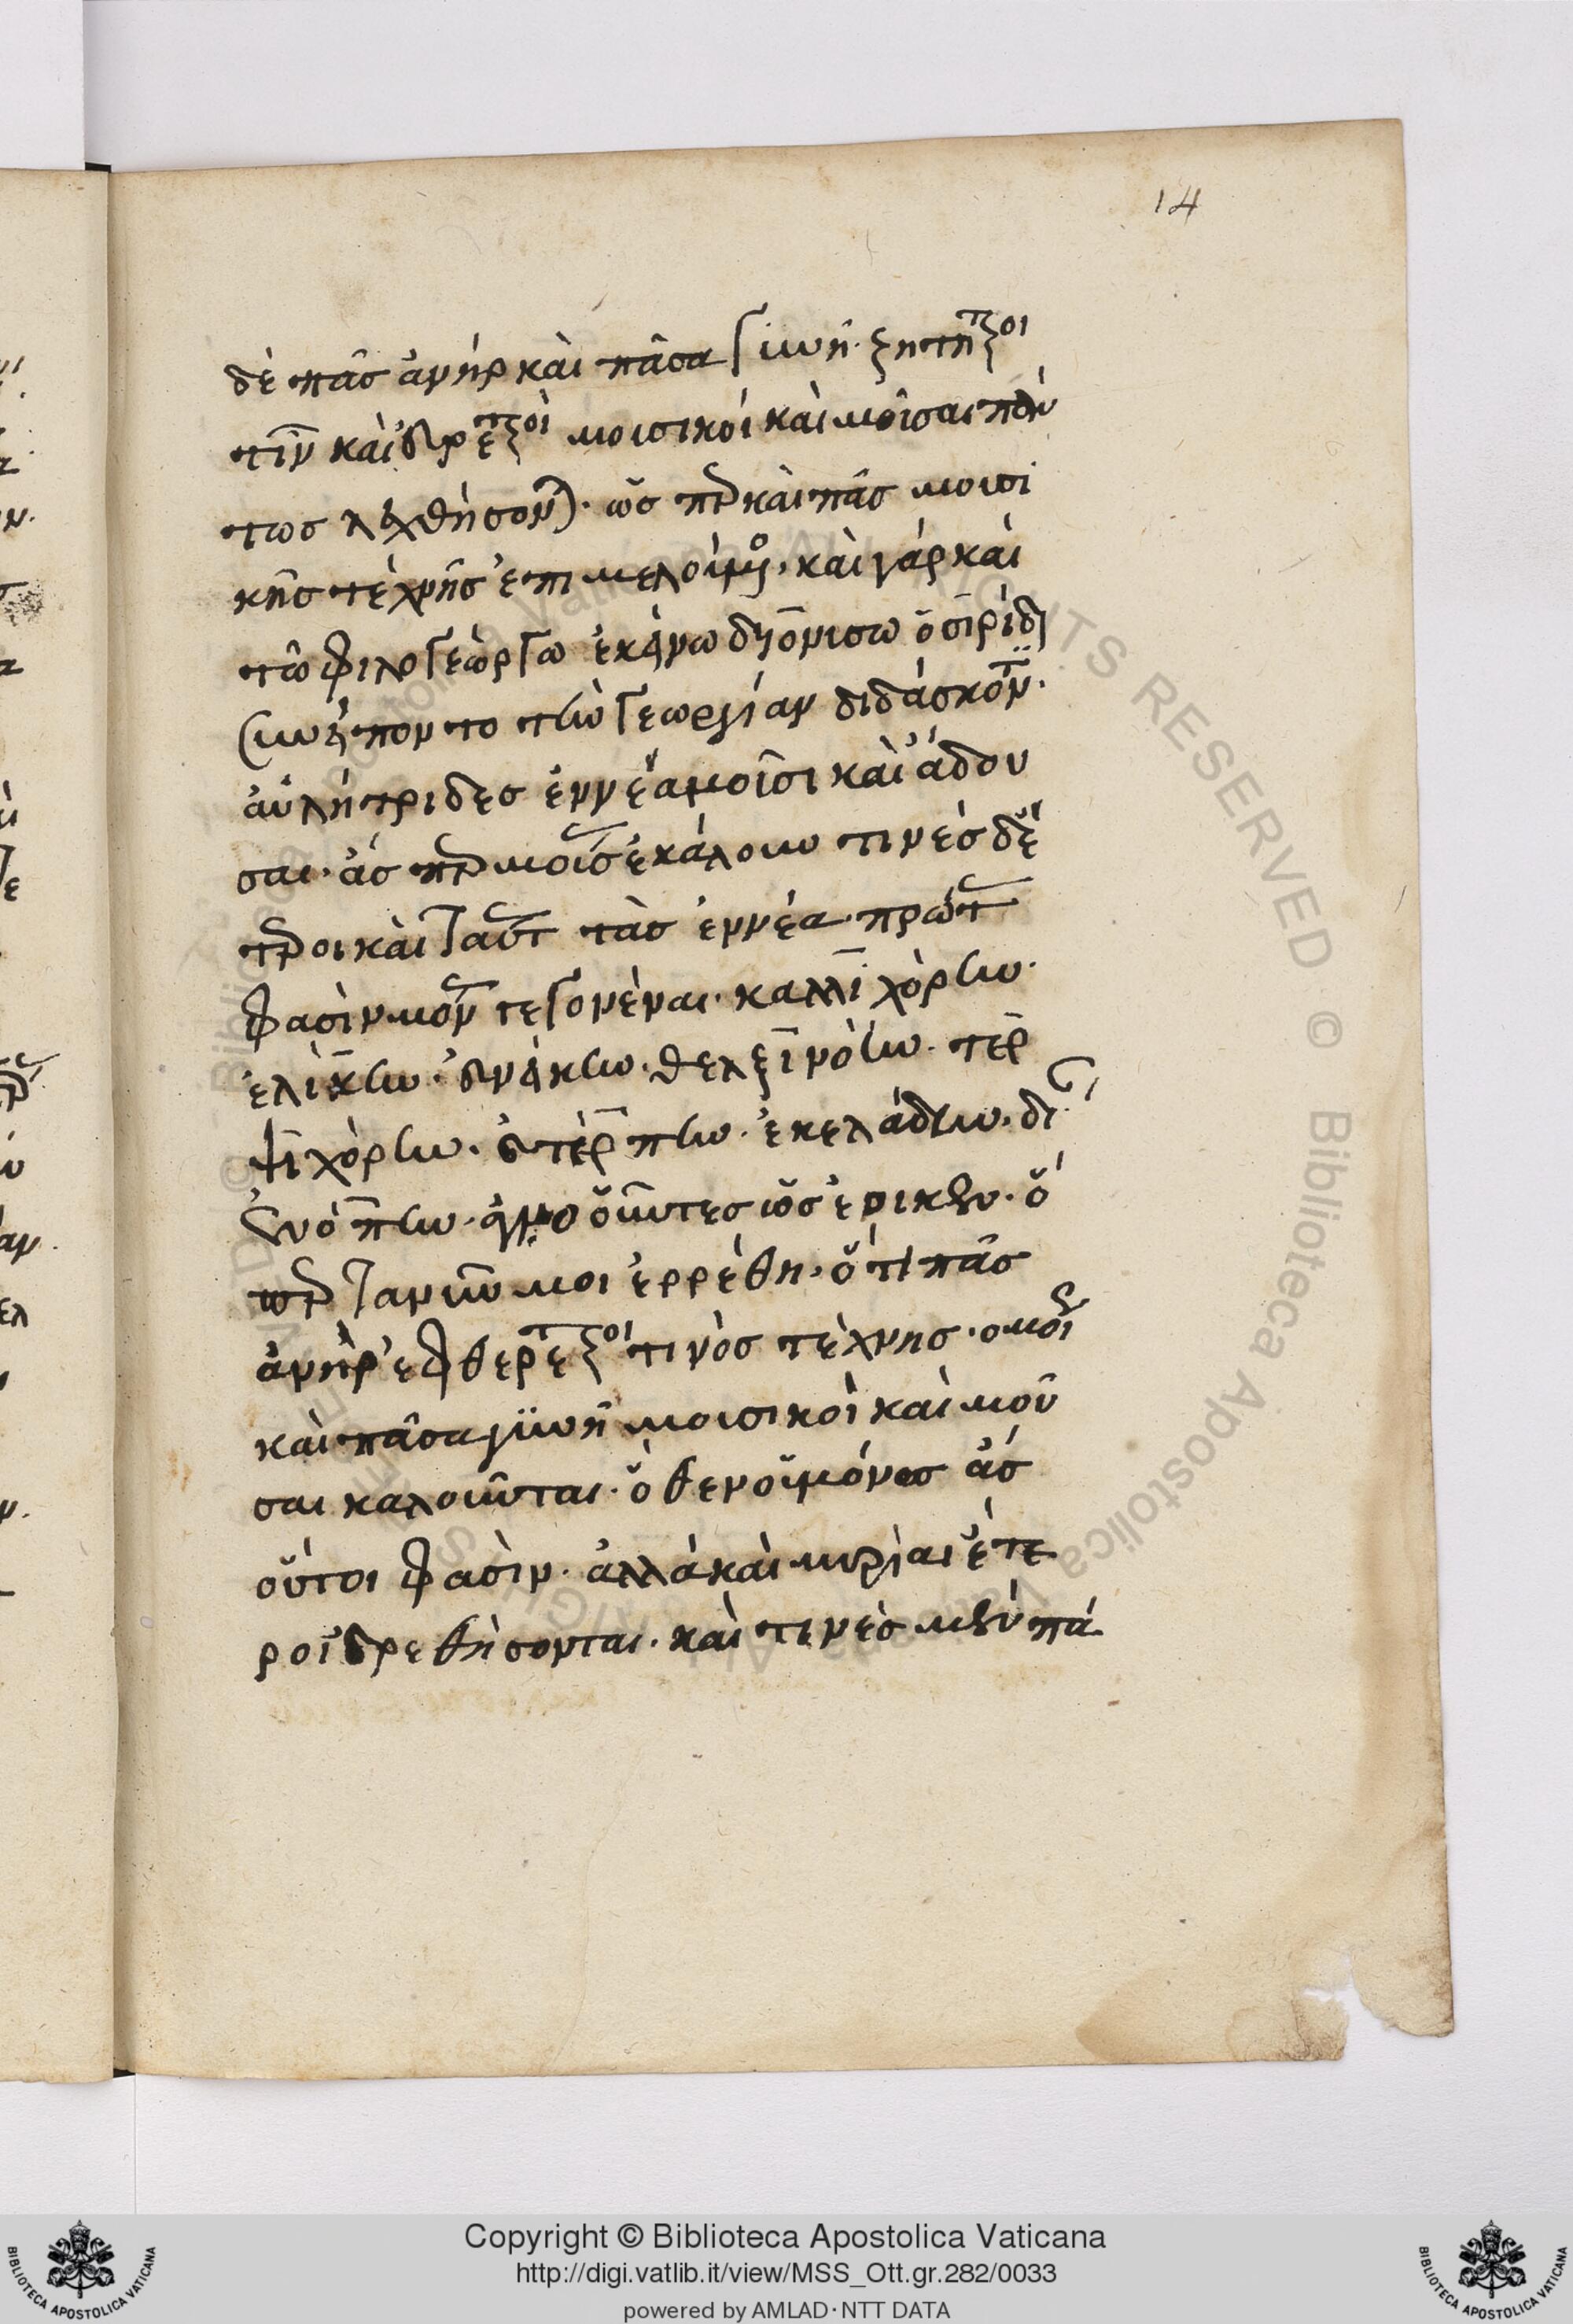 14
δὲ πᾶς ἀνὴρ καὶ πᾶσα γυνὴ. ζητητικοὶ
τινῶν καὶ εὑρετικοὶ μουσικοὶ καὶ μοῦσαι πάν
τως λεχθήσονται. ὥσπερ καὶ πᾶς μουσι
κῆς τέχνης ἐπιμελούμενος. καὶ γὰρ καὶ
τῷ φιλογεώργω ἐκείνω διονύσω ὀσίριδι
συνείποντο τὴν γεωργίαν διδάσκοντι.
αὐλητρίδες ἐννέα μουσικαὶ ἄδου
σαι. ἅσπερ μούσας ἐκάλουν τινές δε
ἕτεροι καὶ ταύτας τὰς ἐννέα πρώτας
φασὶν μόνον γεγονέναι. καλλιχόρην.
ἑλίκην. εὐνείκην. θελξινόην. τερ
ψιχόρην. εὐτέρπην. ἐκελάδην. δι
ενόπην. ἀγνοοῦντες ὡς ἔοικεν. ὅ
περ τανῦν μοι ἐρρέθη. ὅτι πᾶς
ἀνὴρ ἐφευρετικοὶ τινὸς τέχνης. ὁμοίως
καὶ πᾶσα γυνὴ μουσικοὶ καὶ μοῦ
σαι καλοῦνται. ὅθεν οὐ μόνας ἅς
οὗτοι φασὶν. ἀλλὰ καὶ μυρίαι ἕτε
ροι εὑρεθήσονται. καὶ τινὲς μὲν πά
Copyright © Biblioteca Apostolica Vaticana
http://digi.vatlib.it/view/MSS_Ott.gr.282/0033
powered by AMLAD·NTT DATA
BIBLIOTECA APOSTOLICA VATICANA
BIBLIOTECA APOSTOLICA VATICANA